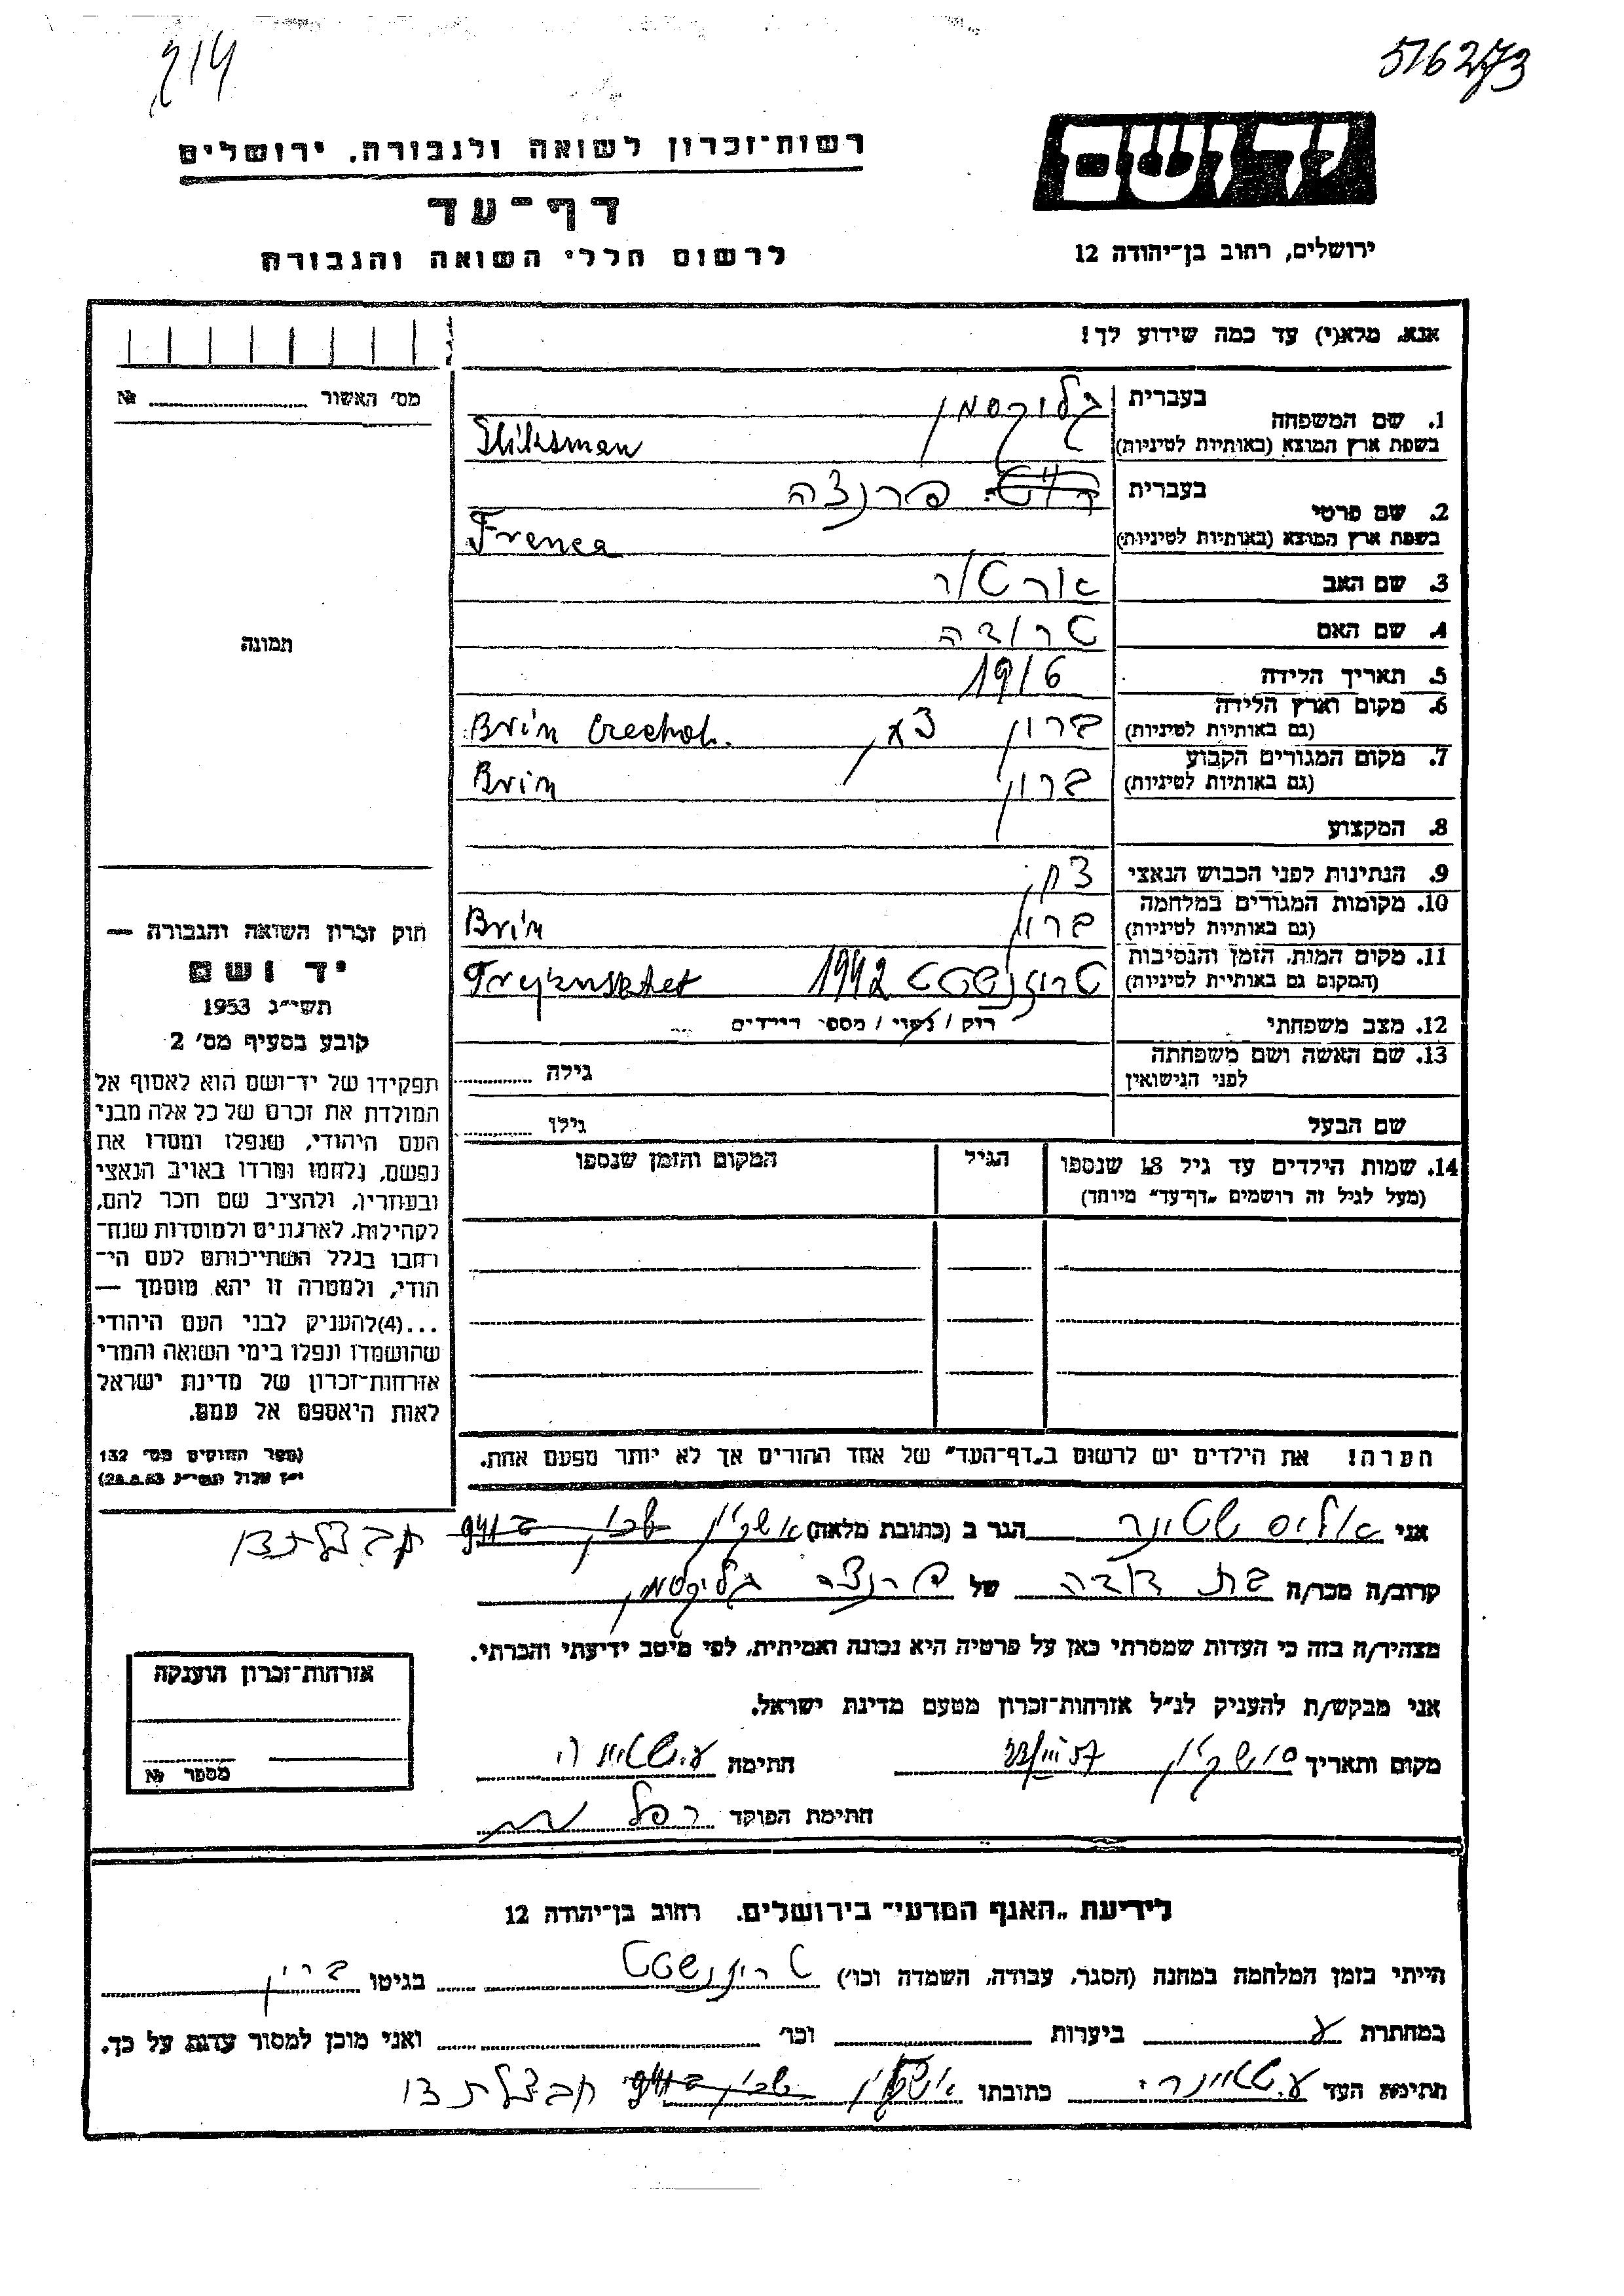 214
516273
יד ושם
ירושלים, רחוב בן־יהודה 12
רשות־זכרון לשואה ולגבורה, ירושלים
דף־עד
לרשום חללי השואה והגבורה
אנא, מלא(י) עד כמה שידוע לך!
מס׳ האשור № 
1. שם המשפחה
בעברית גליקסמן
בשפת ארץ המוצא (באותיות לטיניות) Gliksman
2. שם פרטי
בעברית פרנצה
בשפת ארץ המוצא (באותיות לטיניות) Frenca
3. שם האב ארטור
4. שם האם
5. תאריך הלידה 1916
6. מקום וארץ הלידה ברון צ׳כ
(גם באותיות לטיניות) Brin Czechol.
7. מקום המגורים הקבוע ברון
(גם באותיות לטיניות) Brin
8. המקצוע
9. הנתינות לפני הכבוש הנאצי
10. מקומות המגורים במלחמה ברון
(גם באותיות לטיניות) Brin
11. מקום המות, הזמן והנסיבות טרזינשטט 1942
(המקום גם באותיות לטיניות)
12. מצב משפחתי רוק / נשוי / מספר הילדים
13. שם האשה ושם משפחתה
לפני הנישואין גילה
שם הבעל גילו
14. שמות הילדים עד גיל 18 שנספו הגיל המקום והזמן שנספו
(מעל לגיל זה רושמים „דף־עד״ מיוחד)
הערה! את הילדים יש לרשום ב„דף־העד״ של אחד ההורים אך לא יותר מפעם אחת.
תמונה
חוק זכרון השואה והגבורה —
יד ושם
תשי״ג 1953
קובע בסעיף מס׳ 2
תפקידו של יד־ושם הוא לאסוף אל
המולדת את זכרם של כל אלה מבני
העם היהודי, שנפלו ומסרו את
נפשם, נלחמו ומרדו באויב הנאצי
ובעוזריו, ולהציב שם וזכר להם,
לקהילות, לארגונים ולמוסדות שנח־
רבו בגלל השתייכותם לעם הי־
הודי, ולמטרה זו יהא מוסמך —
...(4)להעניק לבני העם היהודי
שהושמדו ונפלו בימי השואה והמרי
אזרחות־זכרון של מדינת ישראל
לאות היאספם אל עמם.
(ספר החוקים מס׳ 132
י״ז אלול תשי״ג 28.8.53)
אני אליס שטיינר הגר ב (כתובת מלאה) חבצלת
קרוב/ה מכר/ה בת דודה של פרנצה גליקסמן
מצהיר/ה בזה כי העדות שמסרתי כאן על פרטיה היא נכונה ואמיתית, לפי מיטב ידיעתי והכרתי.
אני מבקש/ת להעניק לנ״ל אזרחות־זכרון מטעם מדינת ישראל.
מקום ותאריך חתימה
חתימת הפוקד
אזרחות־זכרון הוענקה
מספר №
לידיעת „האגף המדעי״ בירושלים, רחוב בן־יהודה 12
הייתי בזמן המלחמה במחנה (הסגר, עבודה, השמדה וכו׳) טריזנשטט בגיטו ברין
במחתרת ביערות וכו׳ ואני מוכן למסור עדות על כך.
חתימת העד כתובתו חבצלת